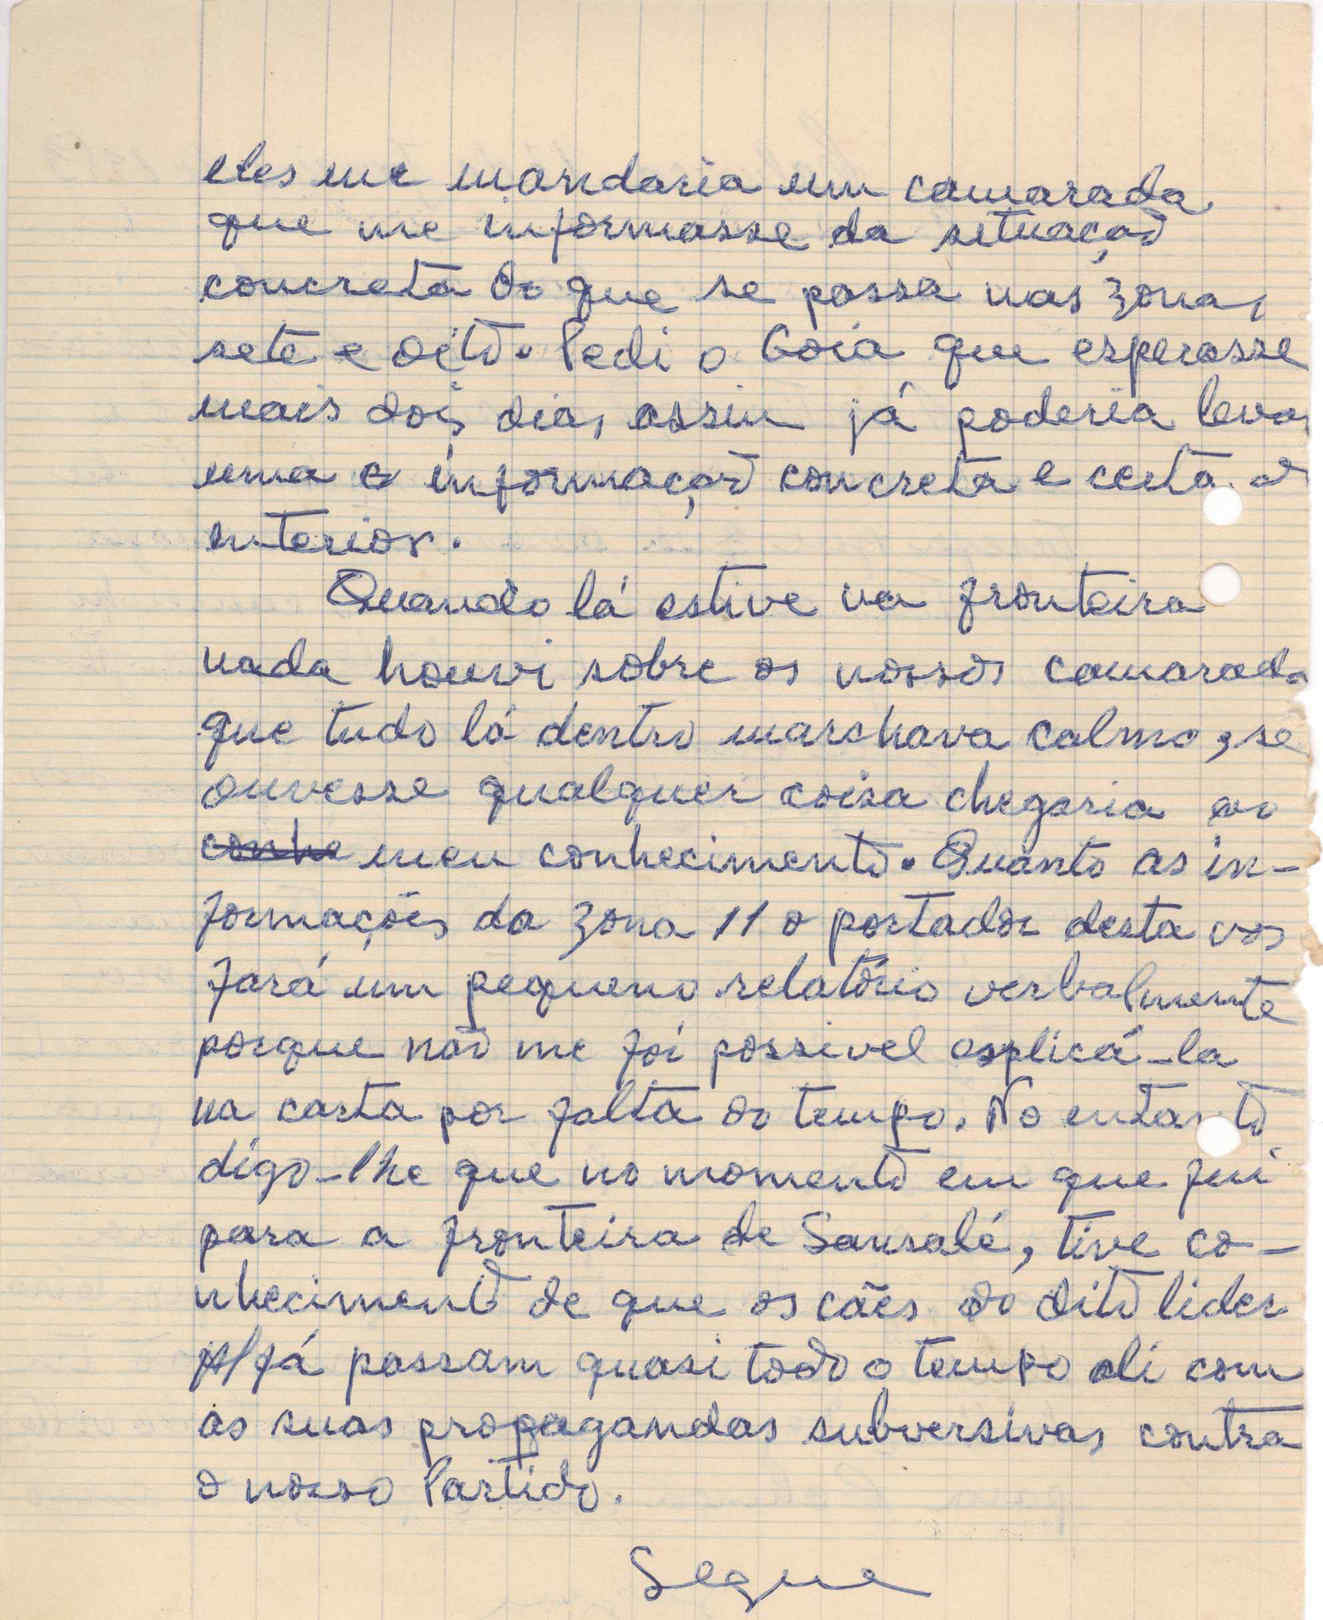 eles me mandaria um camarada
que me informasse da situação
concreta do que se passa nas zonas
sete e oito. Pedi o Goia que esperasse
mais dois dias assim já poderia levar
uma informação concreta e certa d
interior.
Quando lá estive na fronteira
nada houvi sobre os nossos camarada
que tudo lá dentro marchava calmo, se
ouvesse qualquer coisa chegaria ao
conhe meu conhecimento. Quanto as in-
formações da zona 11 o portador desta vos
fará um pequeno relatório verbalmente
porque não me foi possivel explicá-la
na carta por falta do tempo. No entanto
digo-lhe que no momento em que fui
para a fronteira de Sansalé, tive co-
nhecimento de que os cães do dito lider
já passam quasi todo o tempo ali com
as suas propagandas subversivas contra
o nosso Partido.
Segue